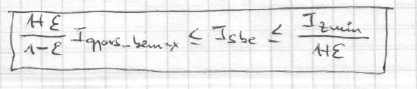 \frac{1+ε}{1-ε} I_{gpovs\_bemax} ≤ I_{sbe} ≤ \frac{I_{zmin}}{1+ε}